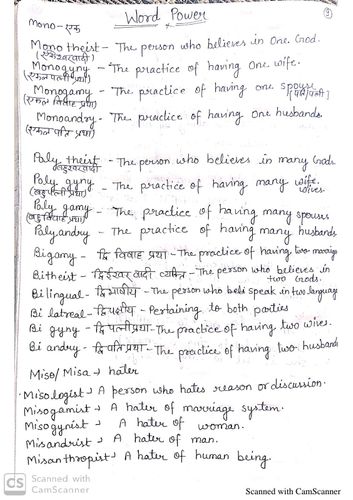 Word Power
Mono-एक
Monotheist - The person who believes in One God.
(एकेश्वरवादी)
Monogyny - The practice of having One wife.
(एकल पत्नी प्रथा)
Monogamy - The practice of having one spouse
(एकल विवाह प्रथा) [पति/पत्नी]
Monoandry - The practice of having One husband.
(एकल पति प्रथा)
Poly theist - The person who believes in many Gods.
(बहुईश्वरवादी)
Poly gyny - The practice of having many wife.
(बहु पत्नी प्रथा) wives.
Poly gamy - The practice of having many spouses
(बहु विवाह प्रथा)
Polyandry - The practice of having many husbands
Bigamy - द्वि विवाह प्रथा - The practice of having two marriag
Bitheist - द्वि ईश्वरवादी व्यक्ति - The person who believes in
two Gods.
Bilingual - द्विभाषीय - The person who speak in two language
Bi latreal - द्विपक्षीय - Pertaining to both parties
Bi gyny - द्विपत्नीप्रथा - The practice of having two wives.
Bi andry - द्विपतिप्रथा - The practice of having two husband
Miso/Misa → hater
Misologist → A person who hates reason or discussion.
Misogamist → A hater of marriage system.
Misogynist → A hater of woman.
Misandrist → A hater of man.
Misanthropist → A hater of human being.
CS Scanned with
CamScanner
Scanned with CamScanner